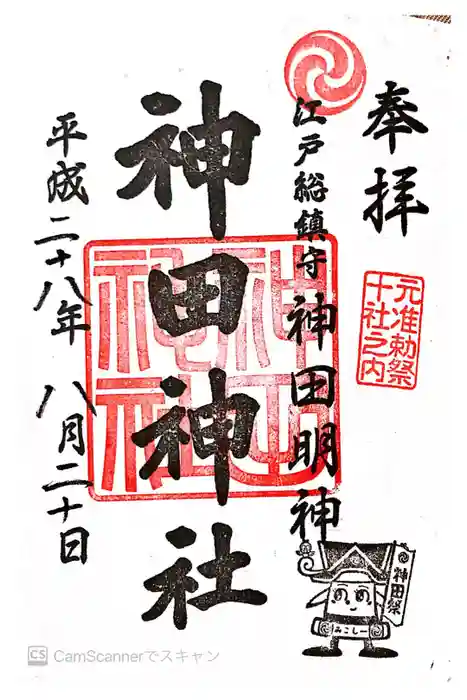 奉拝
元准勅祭
十社之内
江戸総鎮守 神田明神
神田神社
平成二十八年 八月二十日
神田祭
みこしー
CS CamScannerでスキャン